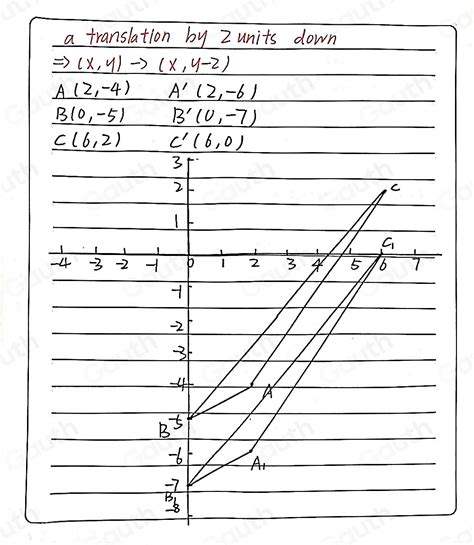 a translation by 2 units down
⇒ (x,y) → (x, y-2)
A(2,-4) A'(2,-6)
B(0,-5) B'(0,-7)
C(6,2) C'(6,0)
3
2 C
1
C₁
-4 -3 -2 -1 0 1 2 3 4 5 6 7
-1
-2
-3
-4 A
B -5
-6 A₁
-7
B₁
-8